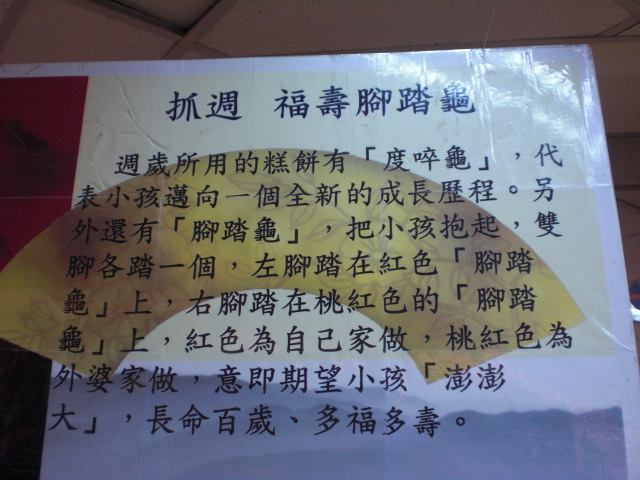 抓週 福壽腳踏龜
週歲所用的糕餅有「度啐龜」，代
表小孩邁向一個全新的成長歷程。另
外還有「腳踏龜」，把小孩抱起，雙
腳各踏一個，左腳踏在紅色「腳踏
龜」上，右腳踏在桃紅色的「腳踏
龜」上，紅色為自己家做，桃紅色為
外婆家做，意即期望小孩「澎澎
大」，長命百歲、多福多壽。